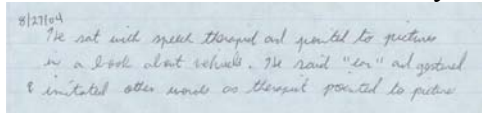 8/27/04
He sat with speech therapist and pointed to pictures
in a book about vehicles. He said "car" and gestured
& imitated other words as therapist pointed to picture